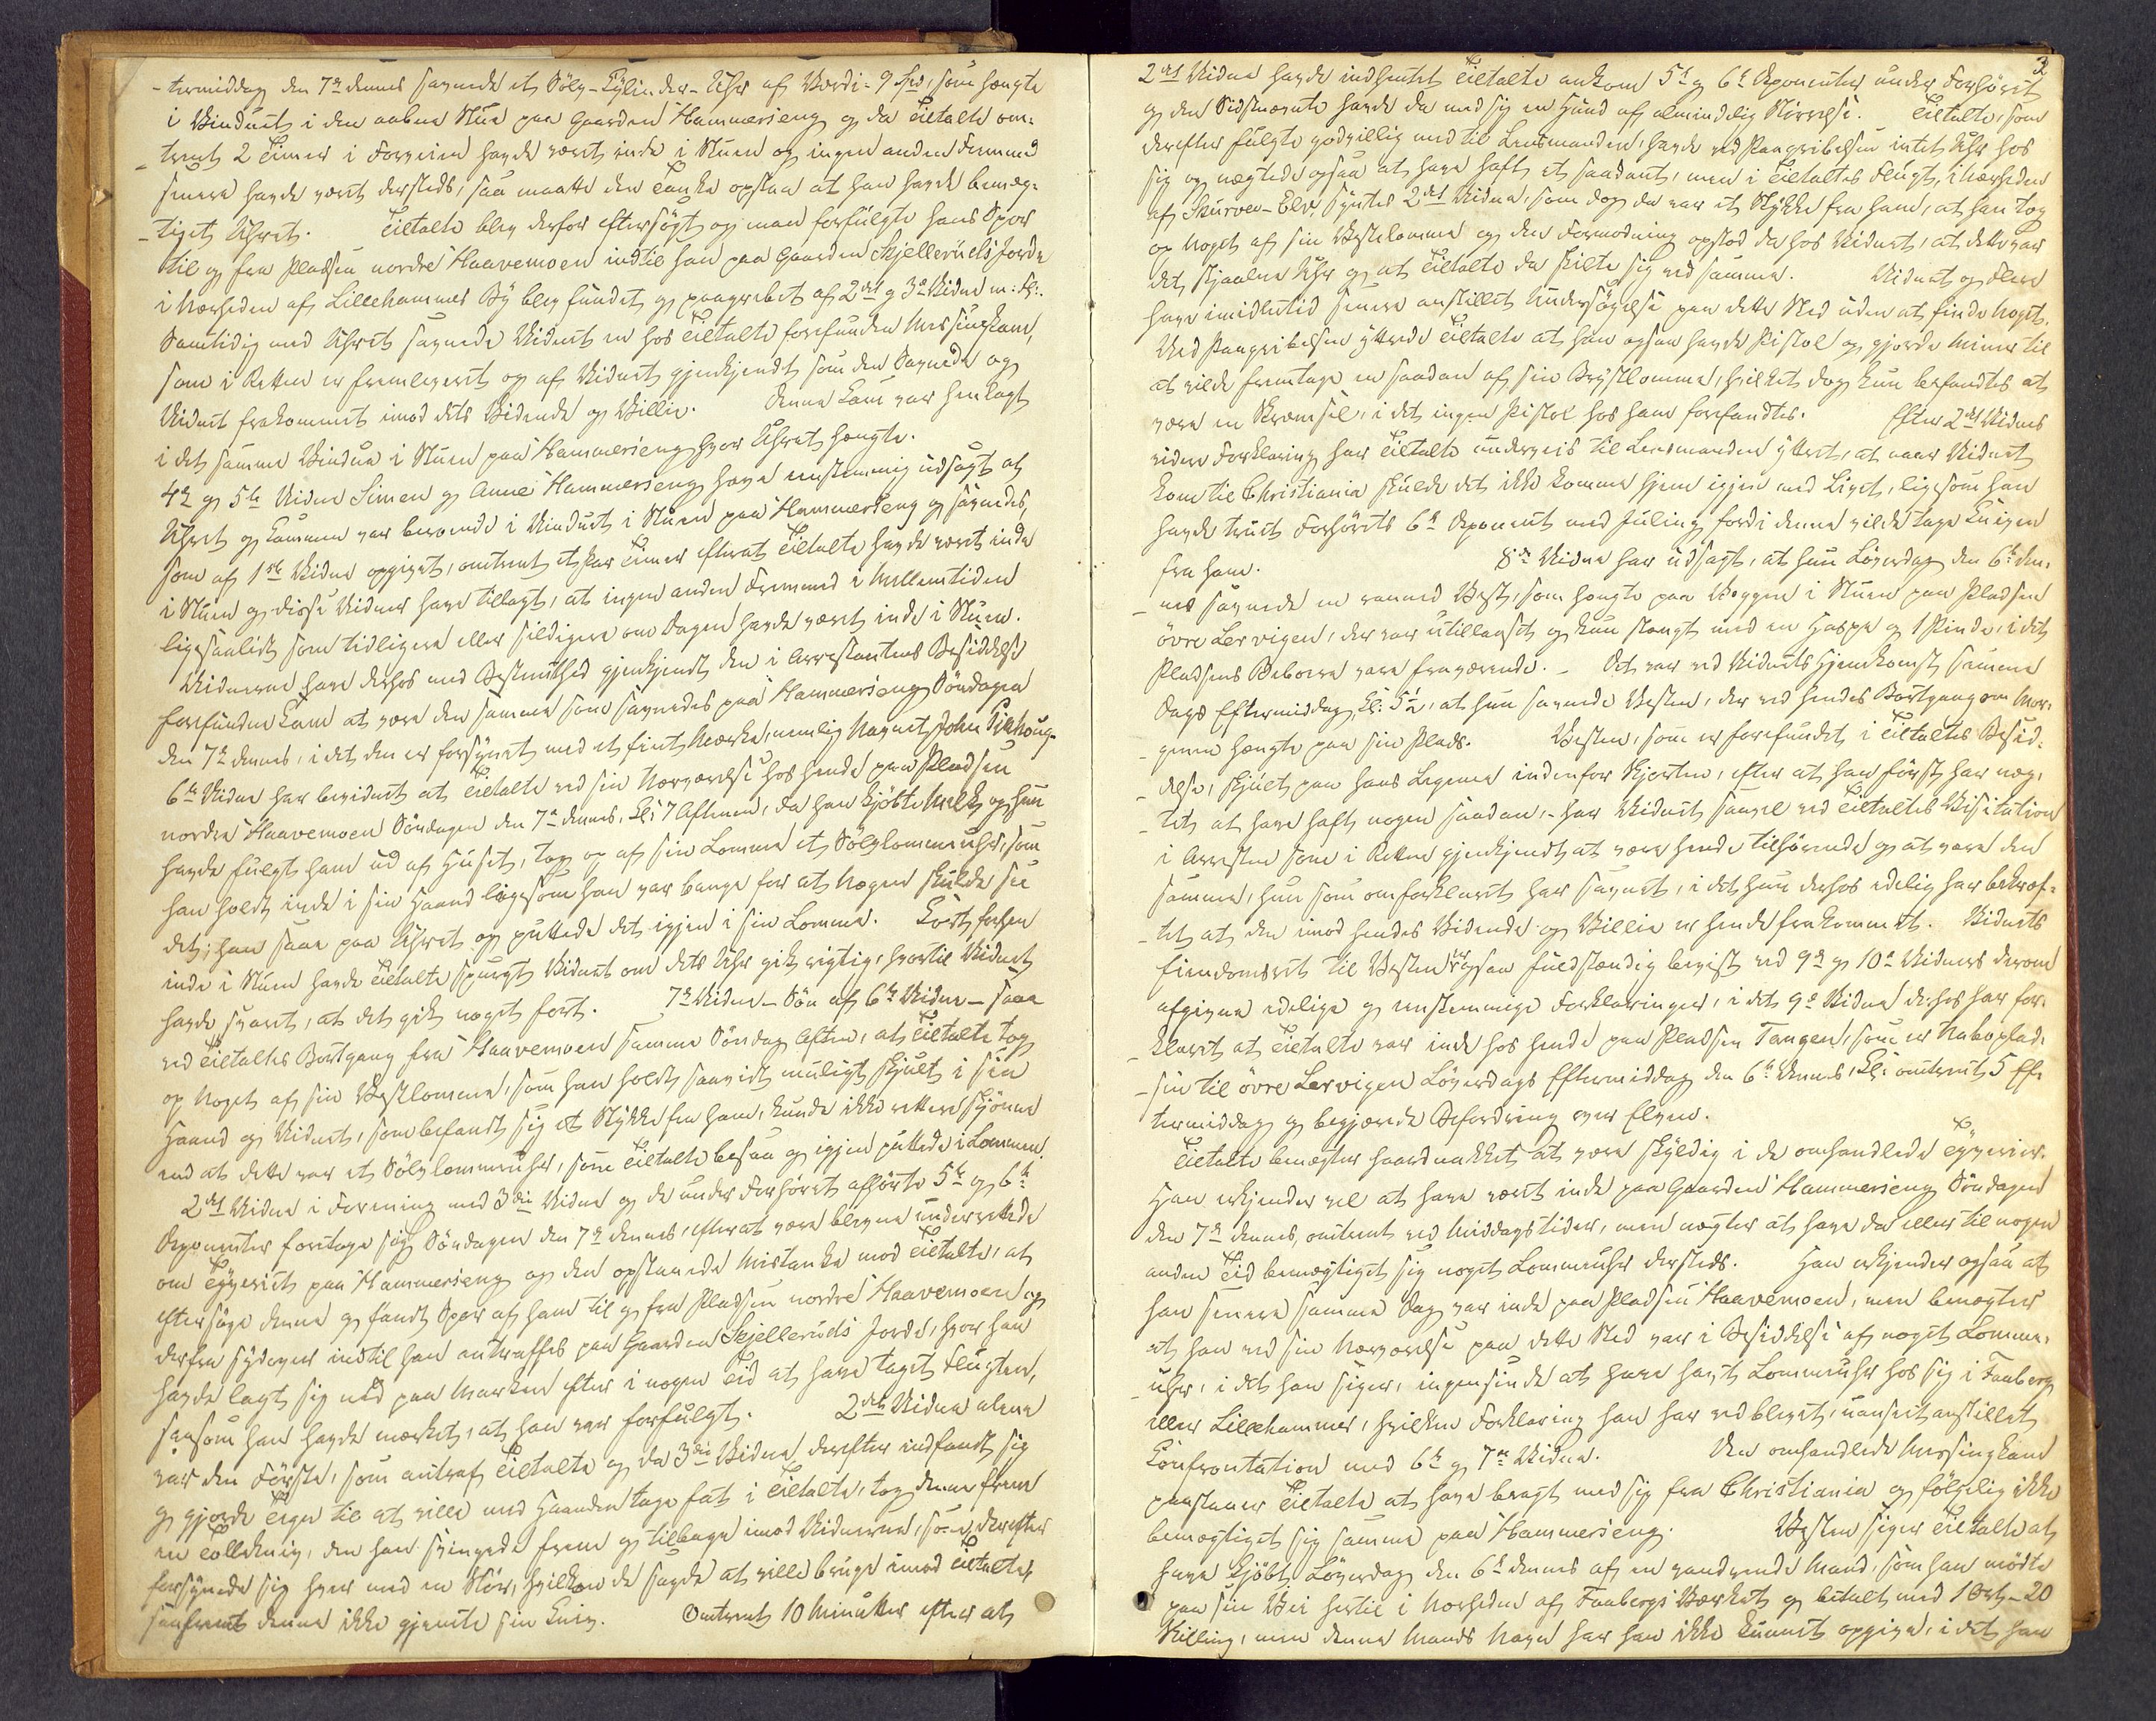 -termiddag den 7de dennes savnede et Sölv-Cylinder-Uhr af Værdi 9 Spd, som hængte
i Vinduet i den aabne Stue paa Gaarden Hammerseng og da Tiltalte om-
trent 2 Timer i Forveien havde været inde i Stuen og ingen anden Fremmed
senere havde været dersteds, saa maatte den Tanke opstaa at han havde bemæg-
-tiget Uhret. Tiltalte blev derfor eftersögt og man forfulgte hans Spor
til og fra Pladsen nordre Haavemoen indtil han paa Gaarden Skjelleruds Jorde
i Nærheden af Lillehammer By blev fundet og paagrebet af 2det og 3die Vidne m: Fl:.
Samtidig med Uhret savnede Vidnet en hos Tiltalte forefunden Messingkam,
som i Retten er fremleveret og af Vidnet gjenkjendt som den Savnede og
Vidnet frakommet imod dets Vidende og Villie. Denne Kam var henlagt
i det samme Vindue i Stuen paa Hammerseng hvor Uhret hængte.
4de og 5te Vidne Simen og Anne Hammerseng have enstemmig udsagt at
Uhret og Kammen var beroende i Vinduet i Stuen paa Hammerseng og savnedes,
som af 1ste Vidne opgivet, omtrent et Par Timer efterat Tiltalte havde været inde
i Stuen og disse Vidner have tillagt, at ingen anden Fremmed i Mellemtiden
ligesaalidt som tidligere eller sildigere om Dagen havde været inde i Stuen.
Vidnerne have derhos med Bestemthed gjenkjendt den i Arrestantens Besiddelse
forefundne Kam at være den samme som savnedes paa Hammerseng Söndagen
den 7de dennes, i det den er forsynet med et fint Mærke, nemlig Navnet John
6te Vidne har bevidnet at Tiltalte ved sin Nærværelse hos hende paa Pladsen
nordre Haavemoen Söndagen den 7de dennes, Kl: 7 Aftenen, da han kjöbte Melk og hun
havde fulgt ham ud af Huset, tog op af sin Lomme et Sölvlommeuhr, som
han holdt inde i sin Haand ligesom han var bange for at Nogen skulde see
det; han saae paa Uhret og puttede det igjen i sin Lomme. Kort forhen
inde i Stuen havde Tiltalte spurgt Vidnet om dets Uhr gik rigtig, hvortil Vidnet
havde svaret, at det gik noget fort. 7de Vidne - Sön af 6te Vidne - saae
ved Tiltaltes Bortgang fra Haavemoen samme Söndag Aften, at Tiltalte tog
op Noget af sin Vestlomme, som han holdt saavidt muligt skjult i sin
Haand og Vidnet, som befandt sig et Stykke fra ham, kunde ikke rettere skjönne
end at dette var et Sölvlommeuhr, som Tiltalte besaa og igjen puttede i Lommen.
2det Vidne i Forening med 3die Vidne og de under Forhöret afhörte 5te og 6te
Deponenter foretoge sig Söndagen den 7de dennes, efterat være blevne underrettede
om Tyveriet paa Hammerseng og den opstaaede Mistanke mod Tiltalte, at
eftersöge denne og fandt Spor af ham til og fra Pladsen nordre Haavemoen og
derfra sydover indtil han antraffes paa Gaarden Skjelleruds Jorde, hvor han
havde lagt sig ned paa Marken efter i nogen Tid at have taget Flugten,
saasom han havde mærket, at han var forfulgt. 2det Vidne alene
var den Förste, som antraf Tiltalte og da 3die Vidne derefter indfandt sig
og gjorde Tegn til at ville med Haanden tage fat i Tiltalte, tog denne frem
en Tollekniv, den han svingede frem og tilbage imod Vidnerne, som derefter
forsynede sig hver med en Stör, hvilken de sagde at ville bruge imod Tiltalte
saafremt denne ikke gjemte sin Kniv. Omtrent 10 Minutter efter at
3
2det Vidne havde indhentet Tiltalte ankom 5te og 6te Deponenter under Forhöret
og den Sidstnævnte havde da med sig en Hund af almindelig Störrelse. Tiltalte, som
derefter fulgte godvillig med til Lensmanden, havde ved Paagribelsen intet Uhr hos
sig og nægtede ogsaa at have haft et saadant, men i Tiltaltes Flugt, i Nærheden
af Skurve-Elv, syntes 2det Vidne, som dog da var et Stykke fra ham, at han tog
op Noget af sin Vestelomme og den Formodning opstod da hos Vidnet, at dette var
det stjaalne Uhr og at Tiltalte da skilte sig ved samme. Vidnet og Flere
have imidlertid senere anstillet Undersögelse paa dette Sted uden at finde Noget.
Ved Paagribelsen yttrede Tiltalte at han ogsaa havde Pistol og gjorde Miner til
at vilde fremtage en saadan af sin Brystlomme, hvilket dog kun befandtes at
være en Skræmsel, i det ingen Pistol hos ham forefandtes. Efter 2det Vidnes
videre Forklaring har Tiltalte underveis til Lensmanden yttret, at naar Vidnet
kom til Christiania skulde det ikke komme hjem igjen med Livet, ligesom han
havde truet Forhörets 6te Deponent med Juling fordi denne vilde tage Kniven
fra ham. 8de Vidne har udsagt, at hun Löverdag den 6te den-
nes savnede en vanned Vest, som hængte paa Væggen i Stuen paa Pladsen
övre Lervigen, der var utillaaset og kun stængt med en Haspe og 1 Pinde, i det
Pladsens Beboere vare fraværende. - Det var ved Vidnets Hjemkomst samme
Dags Eftermiddag, Kl: 5½, at hun savnede Vesten, der ved hendes Bortgang om Mor-
genen hængte paa sin Plads. Vesten, som er forefundet i Tiltaltes Besid-
-delse, skjult paa hans Legeme indenfor Skjorten, efter at han först har næg-
-tet at have haft nogen saadan, har Vidnet saavel ved Tiltaltes Visitation
i Arresten som i Retten gjenkjendt at være hende tilhörende og at være den
samme, hun som omforklaret har savnet, i det hun derhos edelig har bekræf-
-tet at den imod hendes Vidende og Villie er hende frakommet. Vidnets
Eiendomsret til Vesten er ogsaa fuldstændig bevist ved 9de og 10de Vidners derom
afgivne edelige og enstemmige Forklaringer, i det 9de Vidne derhos har for-
-klaret at Tiltalte var inde hos hende paa Pladsen Tangen, som er Naboplad-
-sen til övre Lervigen Löverdags Eftermiddag den 6te dennes, Kl: omtrent 5 Ef-
termiddag og begjærede Befordring over Elven.
Tiltalte benægter haardnakket at være skyldig i de omhandlede Tyverier.
Han erkjender vel at have været inde paa Gaarden Hammerseng Söndagen
den 7de dennes, omtrent ved Middagstider, men nægter at have da eller til nogen
anden Tid bemægtiget sig noget Lommeuhr dersteds. Han erkjender ogsaa at
han senere samme Dag var inde paa Pladsen Haavemoen, men benægter
at han ved sin Nærværelse paa dette Sted var i Besiddelse af noget Lomme-
-uhr, i det han siger, ingensinde at have havt Lommeuhr hos sig i Faaberg
eller Lillehammer, hvilken Forklaring han har ved blevet, uanseet anstillet
Confrontation med 6te og 7de Vidne. Den omhandlede Messingkam
paastaaer Tiltalte at have bragt med sig fra Christiania og fölgelig ikke
bemægtiget sig samme paa Hammerseng. Vesten siger Tiltalte at
have kjöbt Löverdag den 6te dennes af en vandrende Mand, som han mödte
paa sin Vei hertil i Nærheden af Faabergs Værket og betalt med 1 Ort - 20
Skilling, men denne Mands Navn har han ikke kunnet opgive, i det han